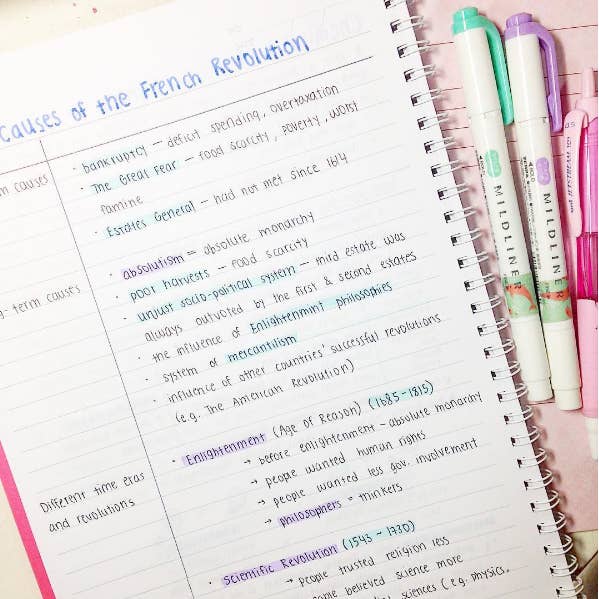 Causes of the French Revolution
causes
• bankruptcy – deficit spending, overtaxation
• The Great Fear – food scarcity, poverty, worst
famine
• Estates General – had not met since 1614
-term causes
• absolutism = absolute monarchy
• poor harvests – food scarcity
• unjust socio-political system – third estate was
always outvoted by the first & second estates
• the influence of Enlightenment philosophies
• system of mercantilism
• influence of other countries' successful revolutions
(e.g. The American Revolution)
Different time eras
and revolutions
• Enlightenment (Age of Reason) (1685-1815)
→ before enlightenment – absolute monarchy
→ people wanted human rights
→ people wanted less gov. involvement
→ philosophers = thinkers
• Scientific Revolution (1543 - 1730)
→ people trusted religion less
people believed science more
sciences (e.g. physics,
MILDLINER
MILDLINER
JETSTREAM